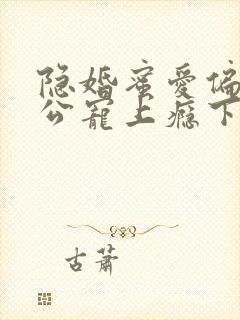 隐婚蜜爱偏
公宠上瘾下
古萧